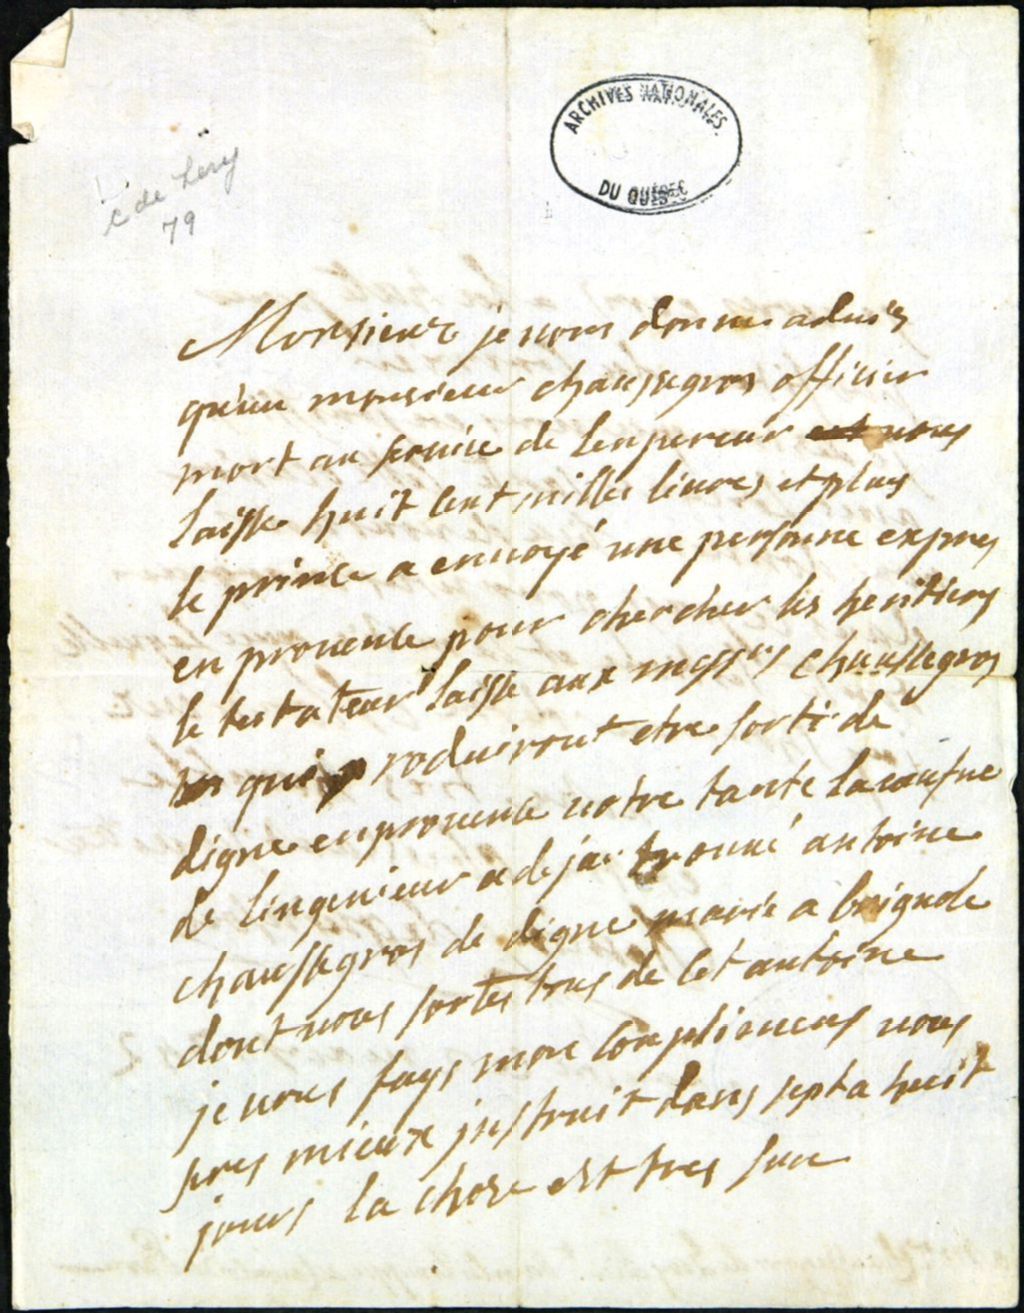 ARCHIVES NATIONALES
DU QUÉBEC
c de Lery
79
Monsieur je vous donne advis
qu'un monsieur chaussegros officier
mort au service de lenpereur est nous
laisse huit cent milles livres et plus
le prince a envoyé une personne expres
en provence pour chercher les heritiers
le testateur laisse aux messrs chaussegros
qui produiront etre sorti de
digne en provence notre tante
de lingenieur a deja trouvé antoine
chaussegros de digne marié a brignole
dont nous sortes tous de cet antoine
je vous fays mon conplimens vous
seres mieux instruit dans sept a huit
jours la chose est tres sure